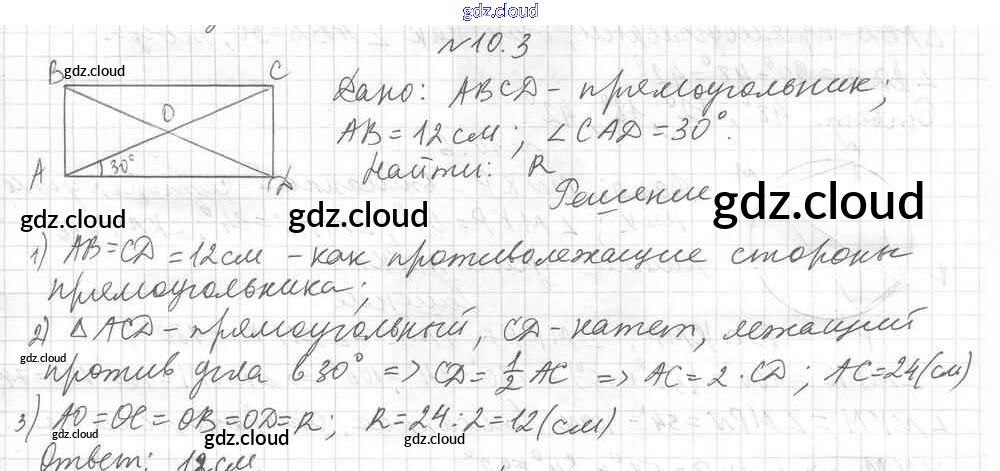 gdz.cloud
№10.3
B gdz.cloud C
O
A 30° D
Дано: ABCD - прямоугольник;
AB = 12 см; ∠CAD = 30°.
Найти: R
Решение
gdz.cloud gdz.cloud gdz.cloud
1) AB = CD = 12 см - как противолежащие стороны
прямоугольника;
2) △ACD - прямоугольный, CD - катет, лежащий
gdz.cloud
против угла в 30° => CD = 1/2 AC => AC = 2 · CD; AC = 24 (см)
3) AO = OC = OB = OD = R; R = 24 : 2 = 12 (см)
gdz.cloud gdz.cloud gdz.cloud
Ответ: 12 см